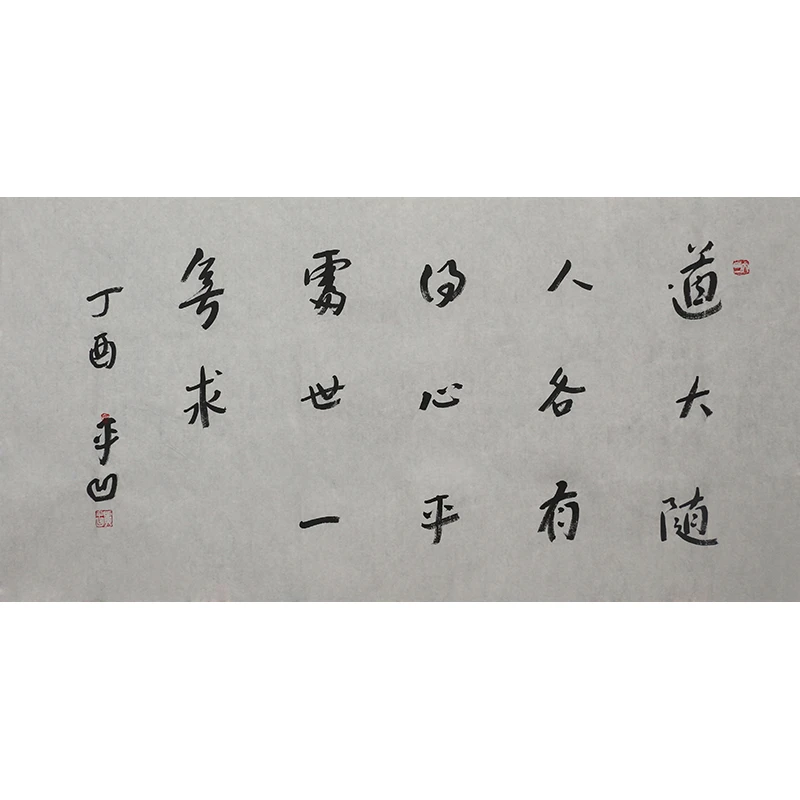 道大随
人各有
得心平
處世一
無求
丁酉 平凹